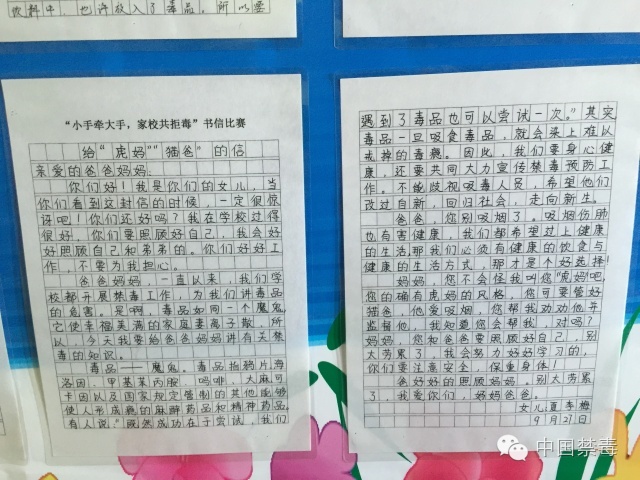 饮料中，也许放入了毒品，所以要
“小手牵大手，家校共拒毒”书信比赛
给“虎妈”“猫爸”的信
亲爱的爸爸妈妈：
你们好！我是你们的女儿，当
你们看到这封信的时候，一定很惊
讶吧！你们还好吗？我在学校过得
很好，你们要照顾好自己，我会好
好照顾自己和弟弟的。你们好好工
作，不要为我担心。
爸爸妈妈，一直以来，我们学
校都开展禁毒工作，为我们讲毒品
的危害。是啊，毒品如同一个魔鬼，
它使幸福美满的家庭妻离子散，所
以，今天我要给爸爸妈妈讲有关禁
毒的知识。
毒品——魔鬼。毒品指鸦片海
洛因、甲基苯丙胺、吗啡、大麻可
卡因以及国家规定管制的其他能够
使人形成瘾的麻醉药品和精神药品。
有人说：“既然成功在于尝试，我们
遇到了毒品也可以尝试一次。”其实
毒品一旦吸食毒品，就会染上难以
戒掉的毒瘾。因此，我们要身心健
康，还要共同大力宣传禁毒预防工
作。不能歧视吸毒人员，希望他们
改过自新，回归社会，走向新生。
爸爸，您别吸烟了。吸烟伤肺
也有害健康，我们都希望过上健康
的生活那我们必须有健康的饮食与
健康的生活方式，那才是个好选择！
妈妈，您不会怪我叫您“虎妈”吧，
您的确有虎妈的风格，您可要管好
猫爸，他爱吸烟，您帮我劝劝他并
监督他，我知道您会帮我，对吗？
妈妈，您和爸爸要照顾好自己，别
太劳累了，我会努力好好学习的，
你们要注意安全，保重身体！
爸爸好好的照顾妈妈，别太劳累
了，我爱你们，妈妈爸爸。
女儿：夏季梅
9月21日
中国禁毒